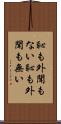 恥も外聞も
ない恥も外
聞も無い